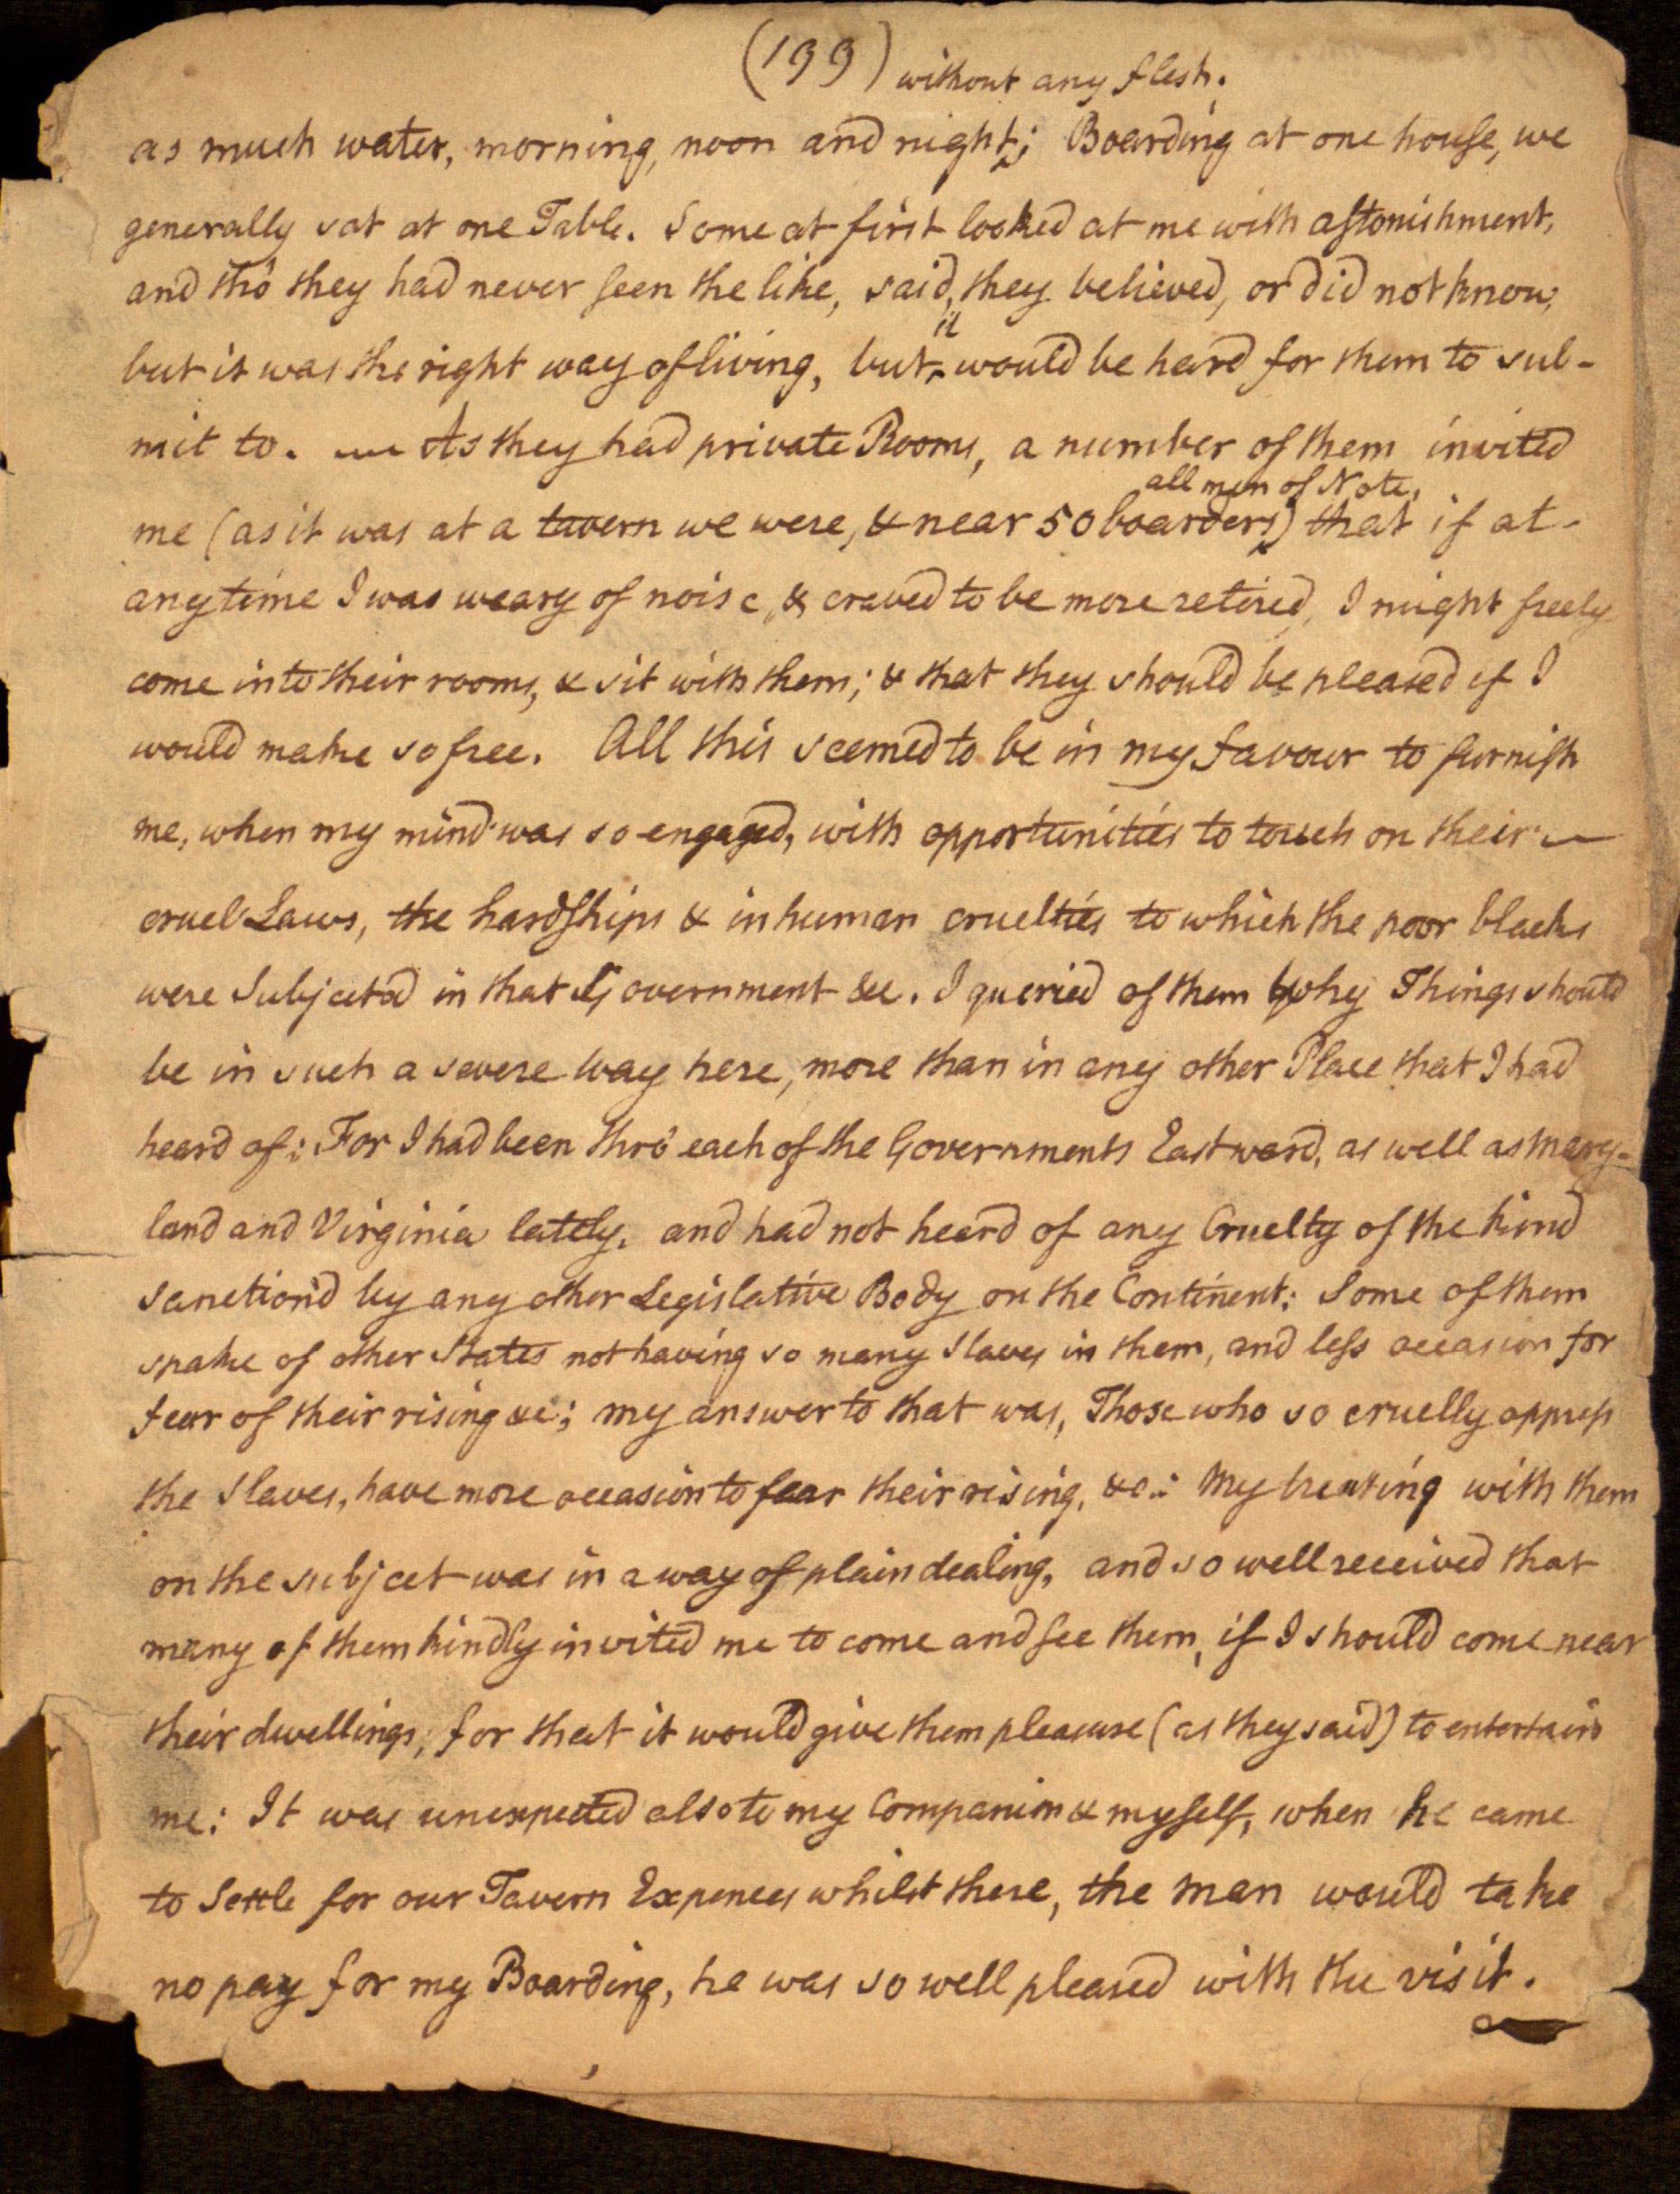 (199) without any flesh.
as much water, morning, noon and night; Boarding at one house, we
generally sat at one Table. Some at first looked at me with astonishment,
and tho' they had never seen the like, said, they believed, or did not know,
it
but it was the right way of living, but ‸ would be hard for them to sub-
mit to. — As they had private Rooms, a number of them invited
all men of Note,
me (as it was at a tavern we were, & near 50 boarders‸) that if at-
any time I was weary of noise, & craved to be more retired, I might freely
come into their rooms, & sit with them; & that they should be pleased if I
would make so free. All this seemed to be in my favour to furnish
me, when my mind was so engaged, with opportunities to touch on their —
cruel Laws, the hardships & inhuman cruelties to which the poor blacks
were Subjected in that Government &c. I queried of them Why Things should
be in such a severe way here, more than in any other Place that I had
heard of: For I had been thro' each of the Governments Eastward, as well as Mary-
land and Virginia lately, and had not heard of any Cruelty of the kind
sanction'd by any other Legislative Body on the Continent: Some of them
spake of other States not having so many slaves in them, and less occasion for
fear of their rising &c; my answer to that was, Those who so cruelly oppress
the slaves, have more occasion to fear their rising, &c.: My treating with them
on the subject was in a way of plain dealing, and so well received that
many of them kindly invited me to come and see them, if I should come near
their dwellings, for that it would give them pleasure (as they said) to entertain
me: It was unexpected also to my Companion & myself, when he came
to Settle for our Tavern Expences whilst there, the man would take
no pay for my Boarding, he was so well pleased with the visit.